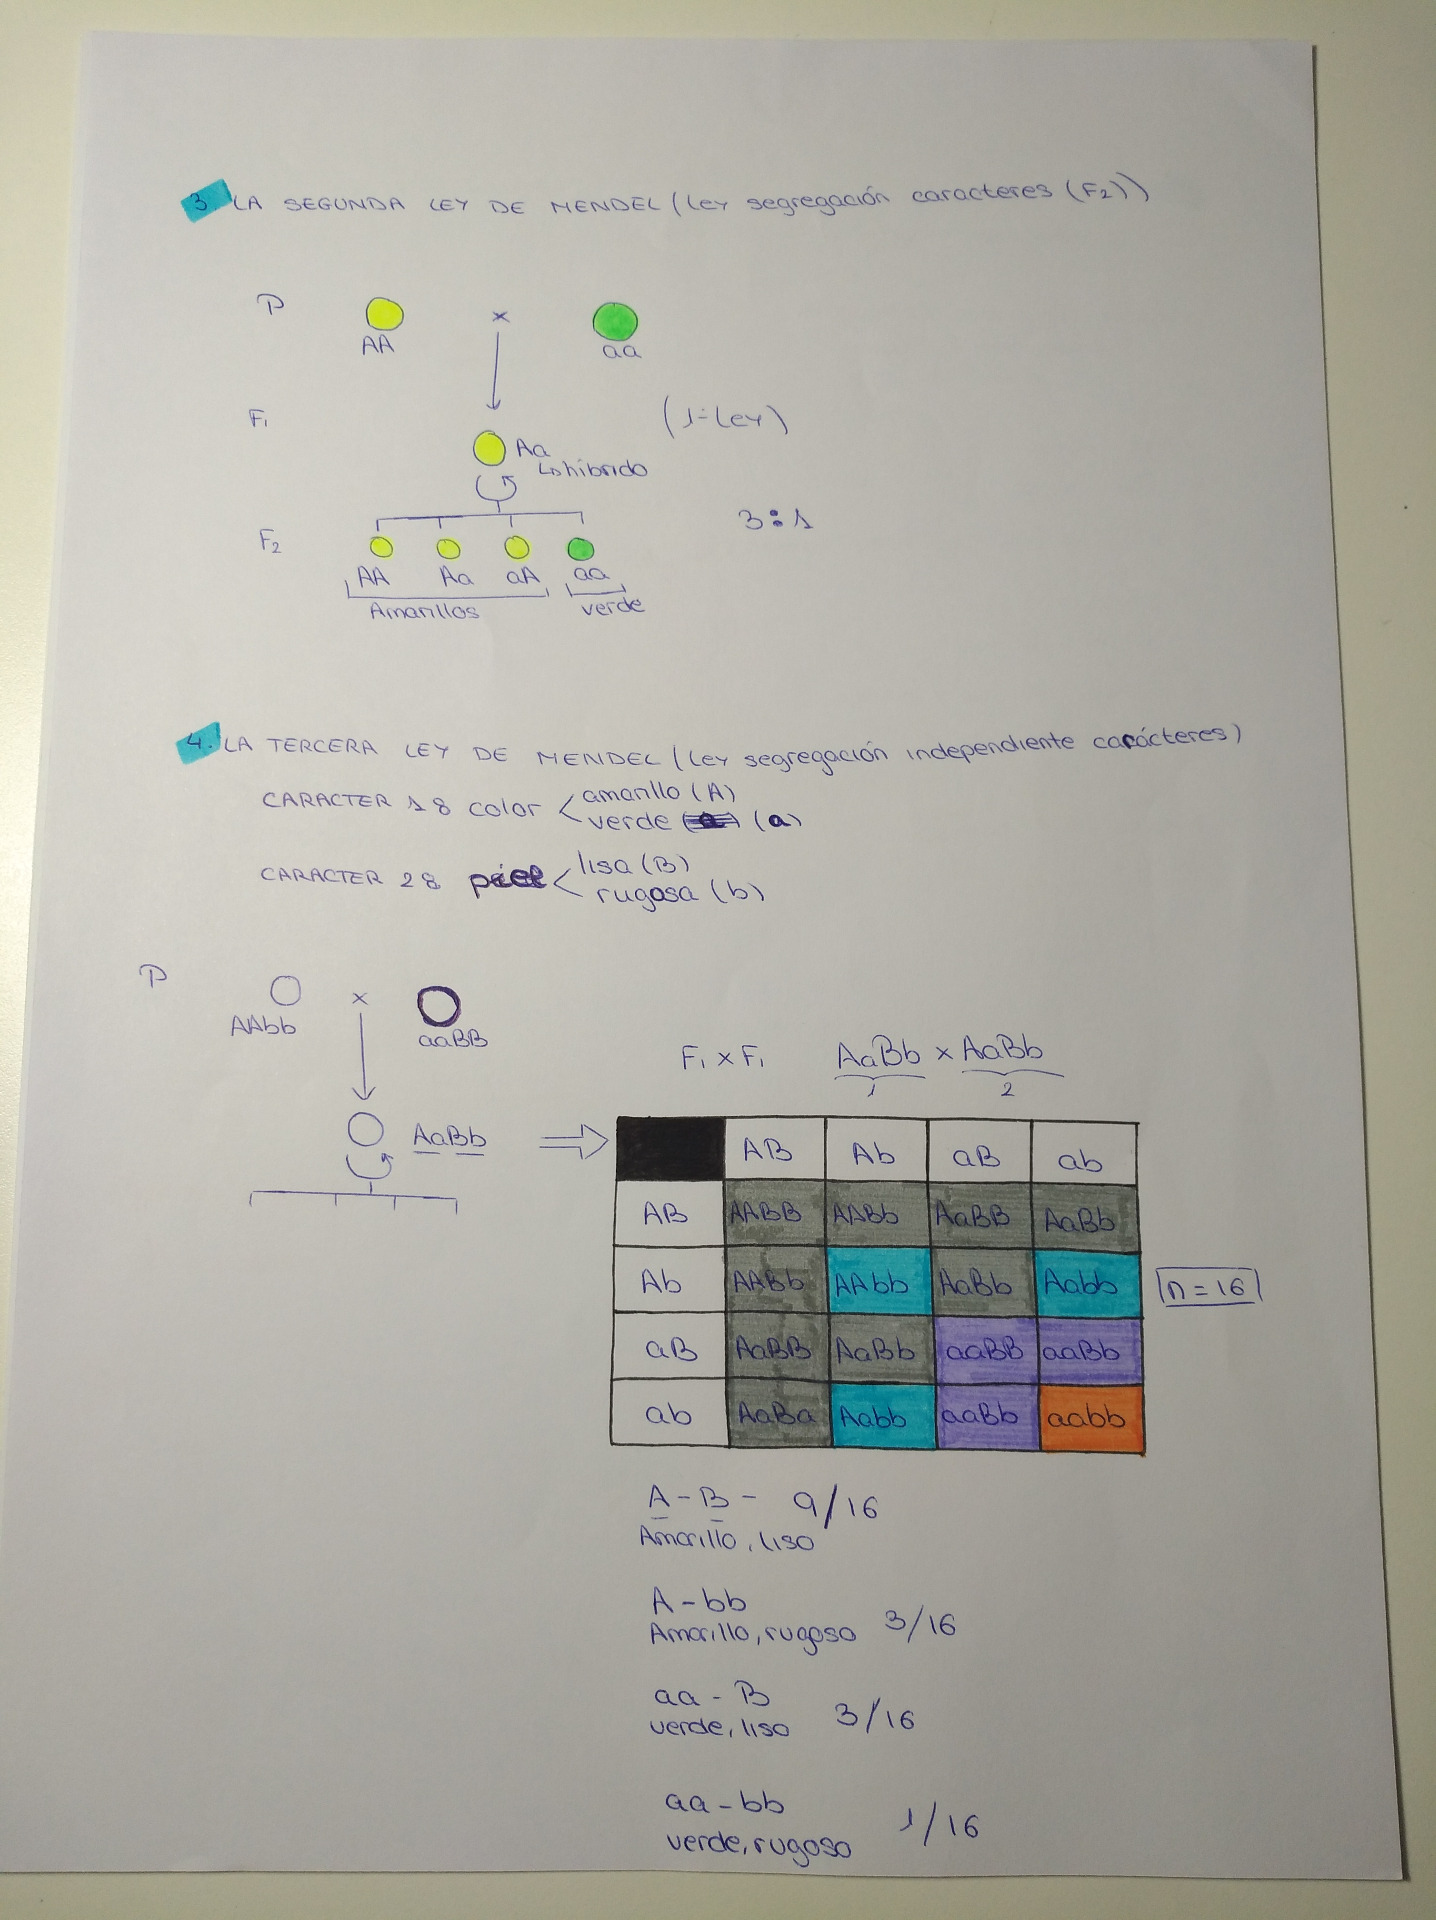 3. LA SEGUNDA LEY DE MENDEL (Ley segregación caracteres (F2))
P
AA
x
aa
F1
(1ª Ley)
Aa
↳ híbrido
3:1
F2
AA Aa aA aa
Amarillos verde
4. LA TERCERA LEY DE MENDEL (Ley segregación independiente carácteres)
CARACTER 1: color < amarillo (A)
verde (a)
CARACTER 2: piel < lisa (B)
rugosa (b)
P
x
AAbb aaBB
F1 x F1 AaBb x AaBb
1 2
AaBb ⇒
AB Ab aB ab
AB AABB AABb AaBB AaBb
Ab AABb AAbb AaBb Aabb
n = 16
aB AaBB AaBb aaBB aaBb
ab AaBa Aabb aaBb aabb
A - B - 9/16
Amarillo, liso
A - bb
Amarillo, rugoso 3/16
aa - B
verde, liso 3/16
aa - bb
verde, rugoso 1/16